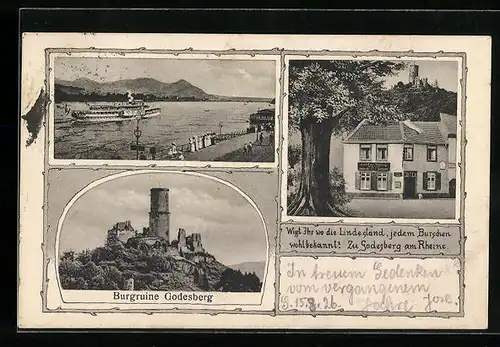 Wißt Ihr wo die Linde stand, jedem Burschen
wohlbekannt? Zu Godesberg am Rheine.
Burgruine Godesberg
In treuem Gedenken
vom vergangenem
G. 15.8.26 Jahre